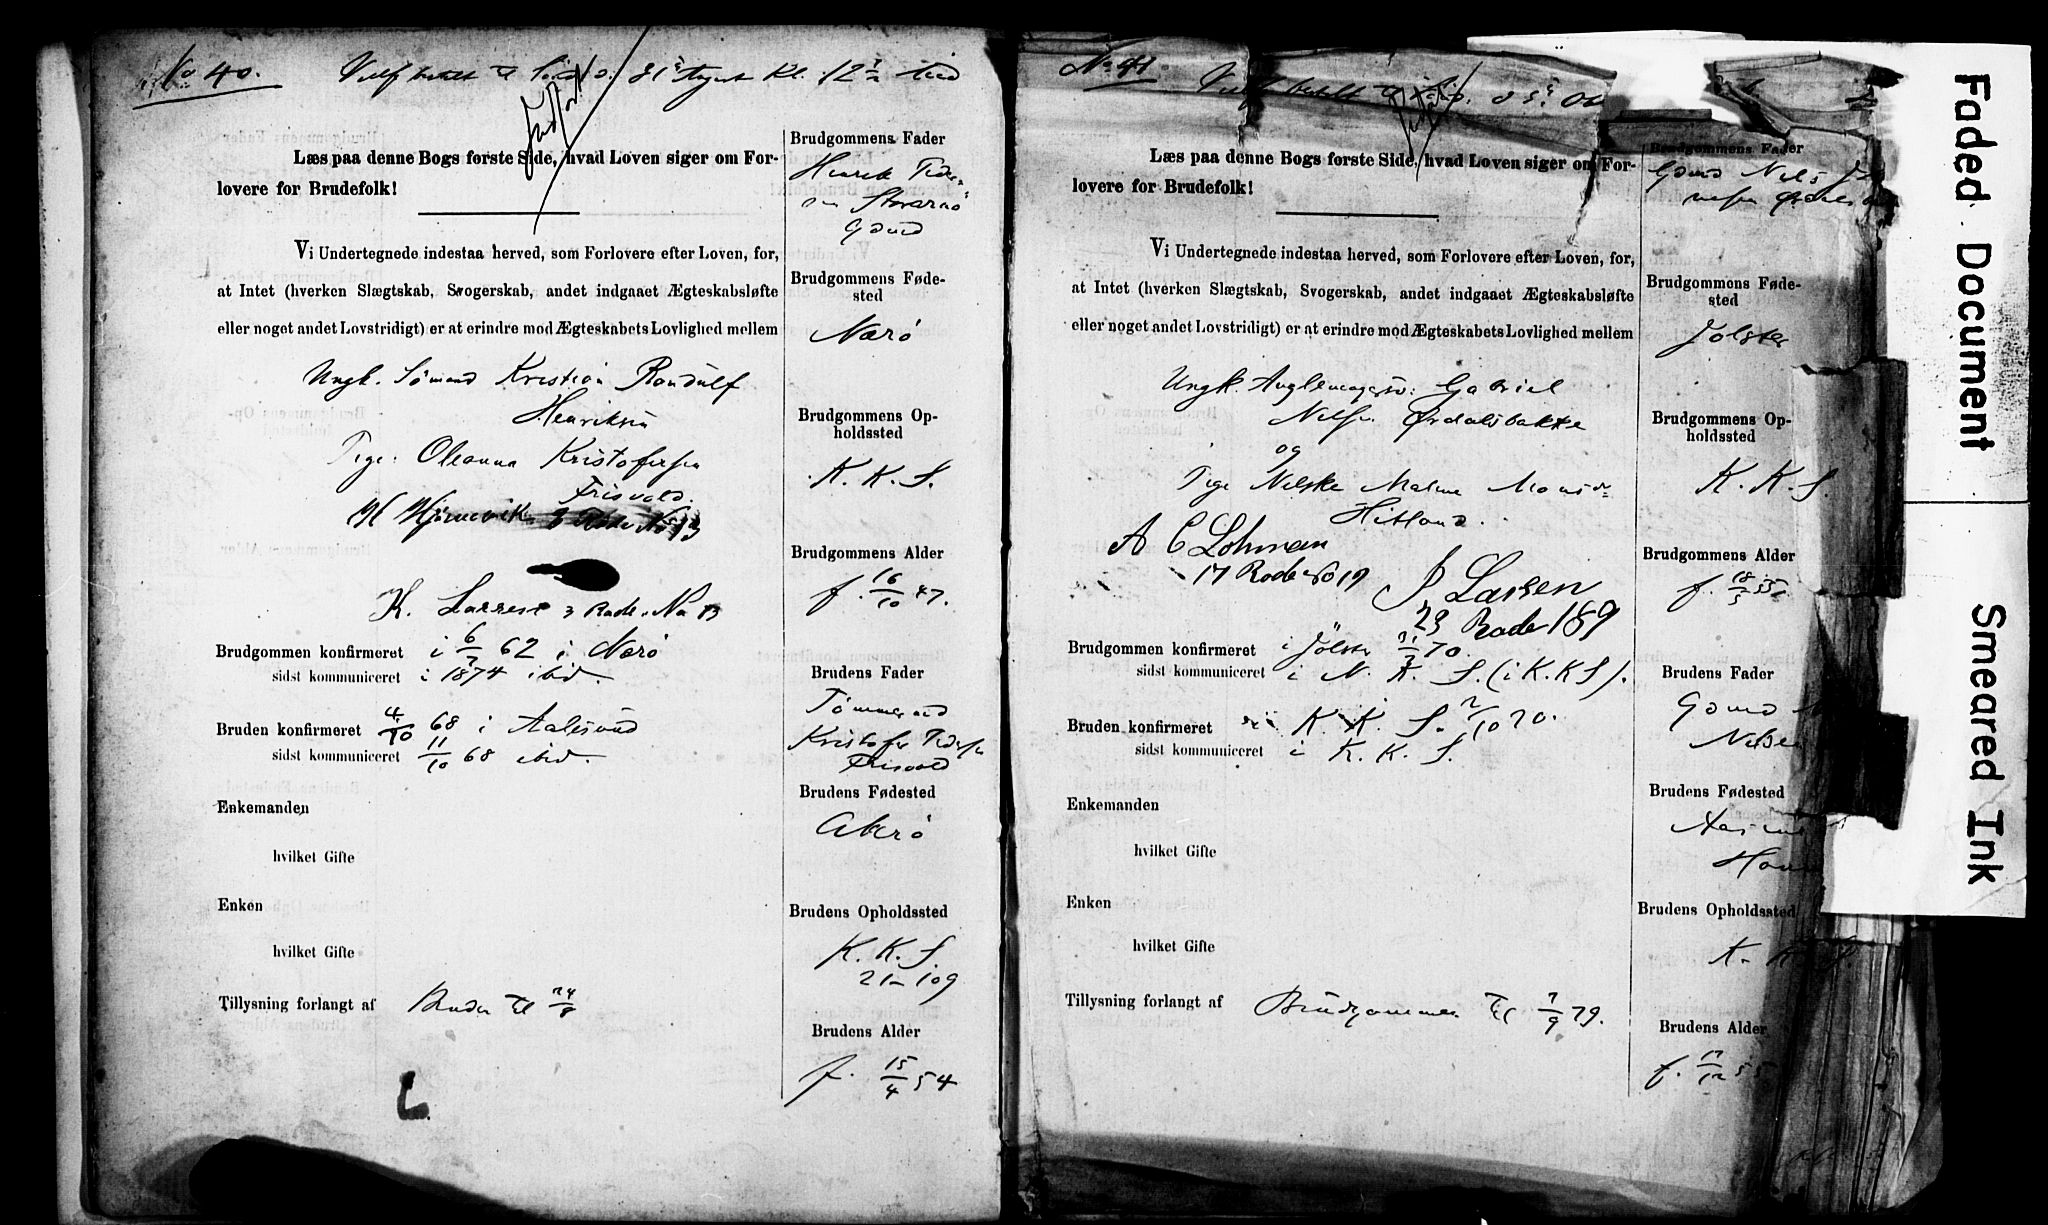 No 40.
Kl. 12
Indført
Læs paa denne Bogs første Side, hvad Loven siger om For-
lovere for Brudefolk!
Vi Undertegnede indestaa herved, som Forlovere efter Loven, for,
at Intet (hverken Slægtskab, Svogerskab, andet indgaaet Ægteskabsløfte
eller noget andet Lovstridigt) er at erindre mod Ægteskabets Lovlighed mellem
Ungk. Sømand Kristian Randulf
Henriksen
Pige: Oleanna Kristofersen
Frisvold.
3 Rode No 13
K. Larsen 3 Rode No 13
Brudgommen konfirmeret i 6/7 62 i Nærø
sidst kommuniceret i 1874 ibid.
Bruden konfirmeret 4/10 68 i Aalesund
sidst kommuniceret 11/10 68 ibid.
Enkemanden
hvilket Gifte
Enken
hvilket Gifte
Tillysning forlangt af Bruden til 24/8
Brudgommens Fader
Henrik Peder-
sen
Gdmd
Brudgommens Føde-
sted
Nærø
Brudgommens Op-
holdssted
K. K. S.
Brudgommens Alder
f. 16/10 47.
Brudens Fader
Tømmermd
Kristofer Peders.
Frisvold
Brudens Fødested
Akerø
Brudens Opholdssted
K. K. S.
21-109
Brudens Alder
f. 15/4 54
No 41
Læs paa denne Bogs første Side, hvad Loven siger om For-
lovere for Brudefolk!
Vi Undertegnede indestaa herved, som Forlovere efter Loven, for,
at Intet (hverken Slægtskab, Svogerskab, andet indgaaet Ægteskabsløfte
eller noget andet Lovstridigt) er at erindre mod Ægteskabets Lovlighed mellem
Ungk. Gabriel
Nilsen Ørdalsbakke
og
Pige Nilske Malene Monsd.
Hitland.
A C Lohman
17 Rode No 19
J Larsen
23 Rode 189
Brudgommen konfirmeret i Jølster 70.
sidst kommuniceret i N. K. S. (i K. K. S).
Bruden konfirmeret i K. K. S. 2/10 70.
sidst kommuniceret i K. K. S.
Enkemanden
hvilket Gifte
Enken
hvilket Gifte
Tillysning forlangt af Brudgommen til 7/9 79.
Brudgommens Fader
Gdmd Nils
Brudgommens Føde-
sted
Jølster
Brudgommens Op-
holdssted
K. K. S.
Brudgommens Alder
f. 18/5 55
Brudens Fader
Gdmd
Nilsen
Brudens Fødested
Brudens Opholdssted
K. K. S
Brudens Alder
f. 17/12 55
Faded Document
Smeared Ink